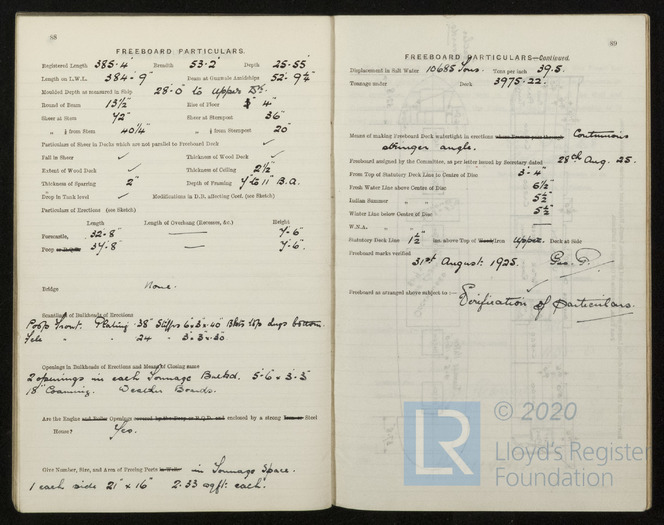 88
FREEBOARD PARTICULARS.
Registered Length 385·4' Breadth 53·2' Depth 25·55'
Length on L.W.L. 384'·9" Beam at Gunwale Amidships 52'·9¼"
Moulded Depth as measured in Ship 28'·0" to Upper Dk.
Round of Beam 13½" Rise of Floor 4"
Sheer at Stem 72" Sheer at Sternpost 36"
" ⅛ from Stem 40¼" " ⅛ from Sternpost 20"
Particulars of Sheer in Decks which are not parallel to Freeboard Deck ✓
Fall in Sheer ✓ Thickness of Wood Deck ✓
Extent of Wood Deck ✓ Thickness of Ceiling 2½"
Thickness of Sparring 2" Depth of Framing 7" to 11" B.A.
Drop in Tank level ✓ Modifications in D.B. affecting Coef. (see Sketch)
Particulars of Erections (see Sketch)
Length Length of Overhang (Recesses, &c.) Height
Forecastle, 32·8" — 7·6"
Poop 37·8" — 7·6"
Bridge None.
Scantling of Bulkheads of Erections
Poop Front. Plating ·38" Stiffrs 6×3×·40" Bkts top lugs bottom.
Fcle " " ·24 " 3×3×·30
Openings in Bulkheads of Erections and Means of Closing same
2 openings in each Tonnage Bulkd. 5·6 × 3·3
18" Coaming. Weather Boards.
Are the Engine and Boiler Openings covered by the Poop or R.Q.D. and enclosed by a strong Iron or Steel
House? Yes.
Give Number, Size, and Area of Freeing Ports in Wells in Tonnage Space.
1 each side 21" × 16" 2·33 sq ft: each.
89
FREEBOARD PARTICULARS—Continued.
Displacement in Salt Water 10685 Tons. Tons per inch 39·5.
Tonnage under Deck 3975·22.
Means of making Freeboard Deck watertight in erections where Frames pass through Continuous
stringer angle.
Freeboard assigned by the Committee, as per letter issued by Secretary dated 28th Aug. 25.
From Top of Statutory Deck Line to Centre of Disc 3'·4"
Fresh Water Line above Centre of Disc 6½"
Indian Summer " " 5½"
Winter Line below Centre of Disc 5½"
W.N.A. " " —
Statutory Deck Line 1½" ins. above Top of Wood Iron Upper Deck at Side
Freeboard marks verified
31st August. 1925. Geo. P.
Freeboard as arranged above subject to :—
Verification of particulars.
LR © 2020
Lloyd's Register
Foundation